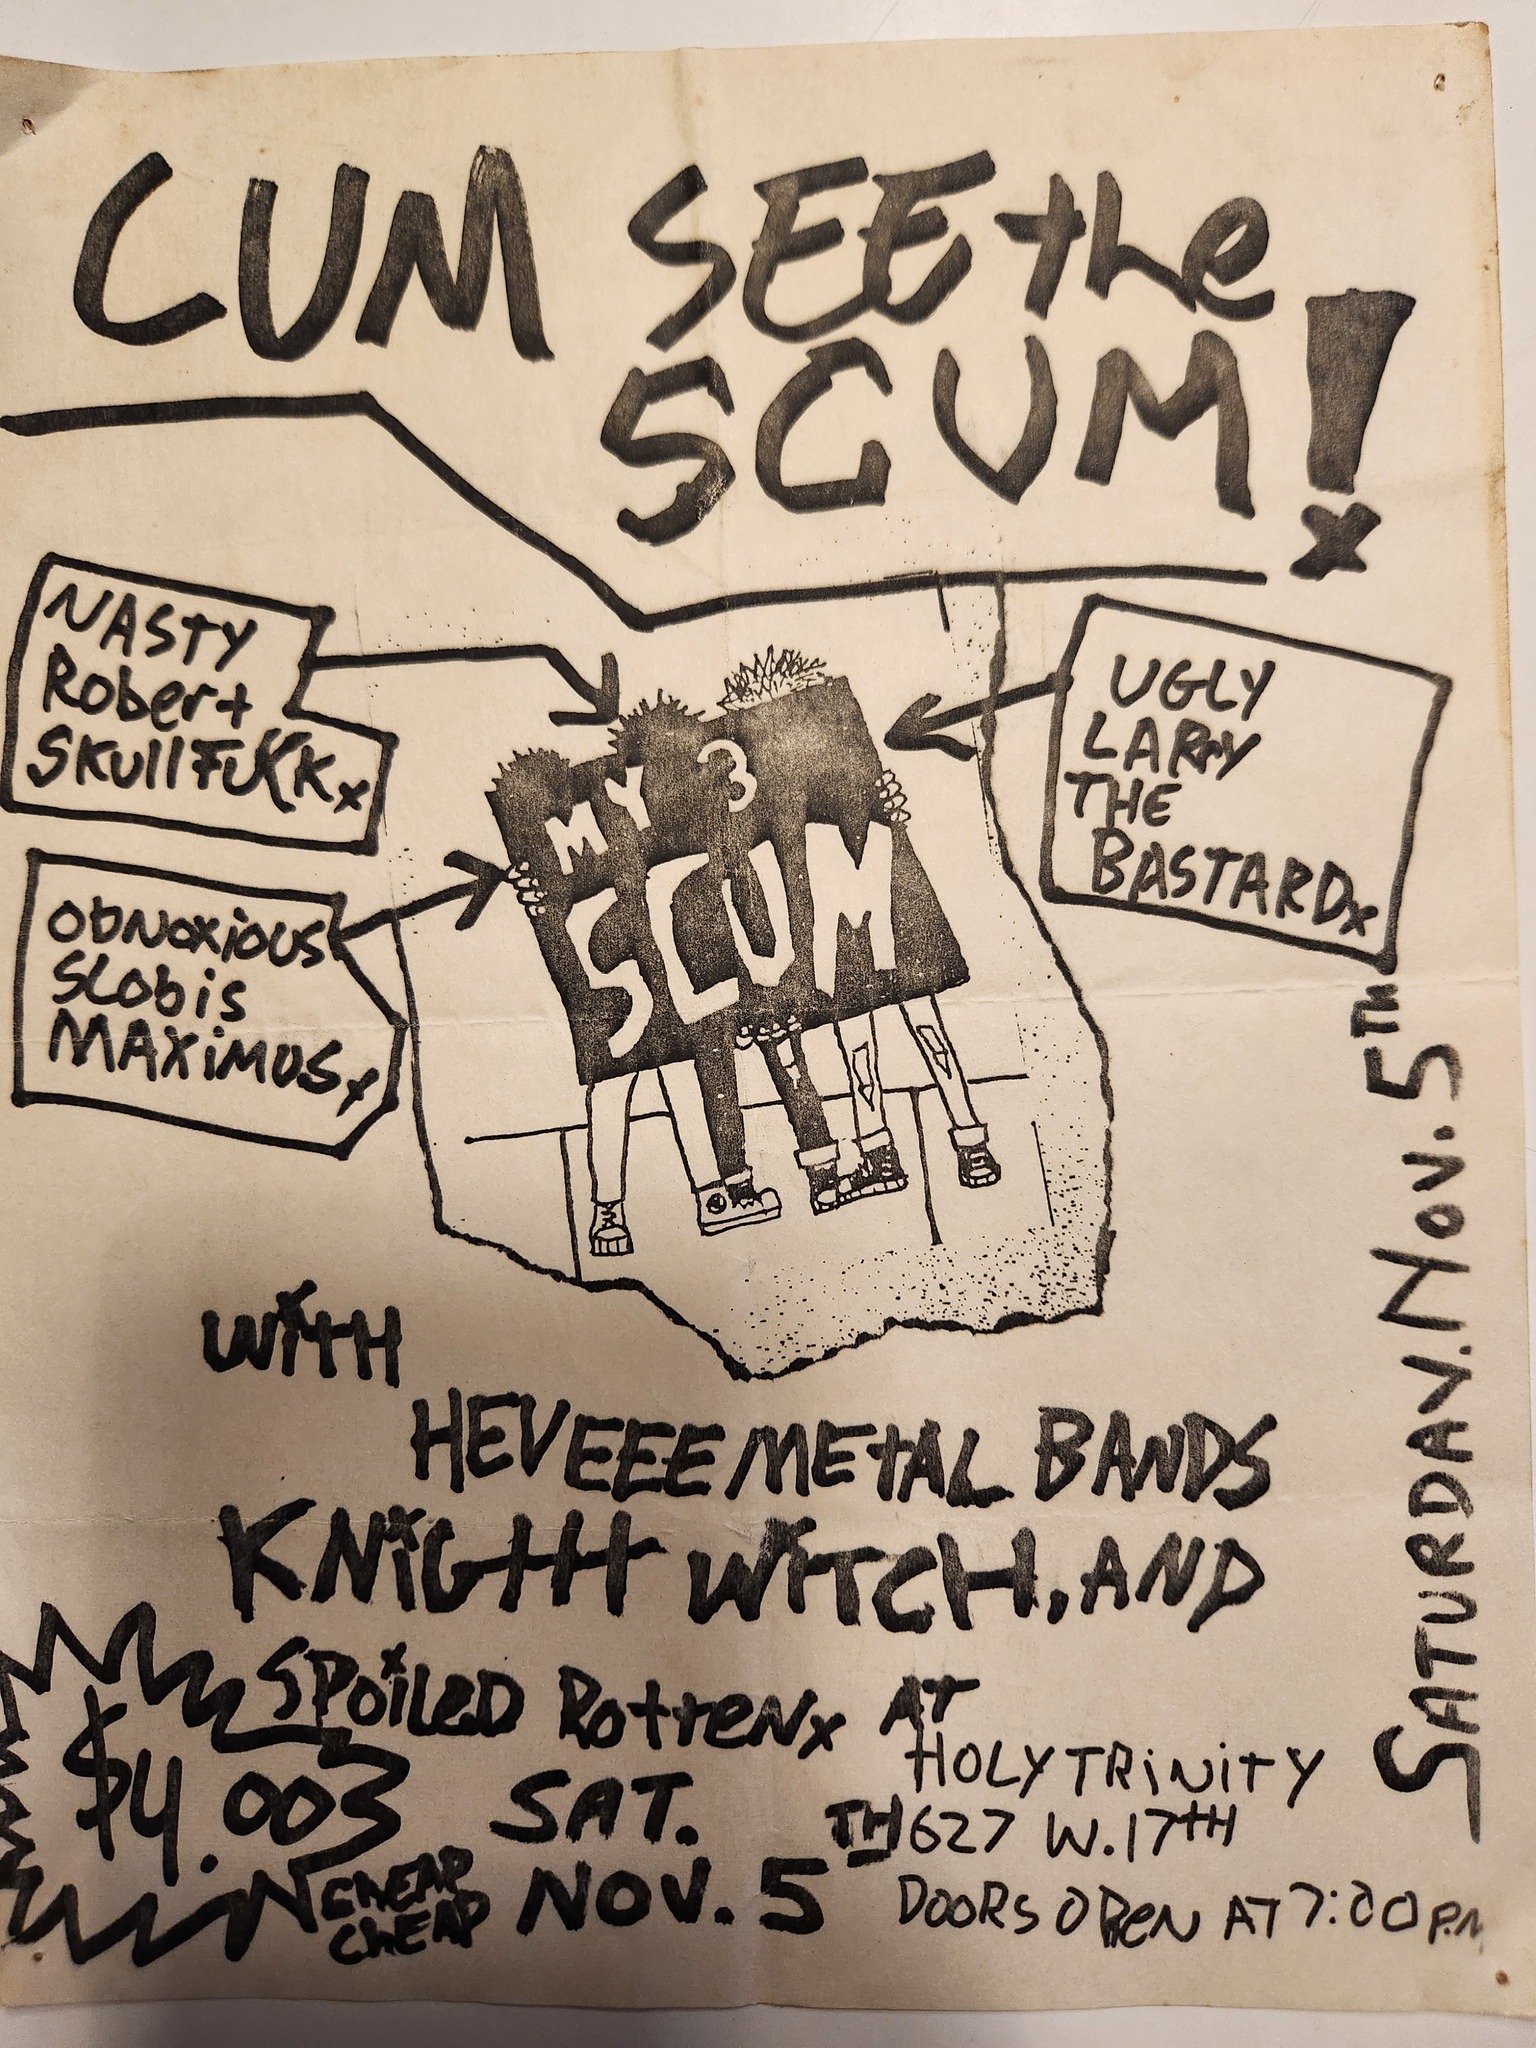 CUM SEE the
SCUM!
NASTY
Robert
SKullFuKKx
UGLY
LARRY
THE
BASTARDx
MY 3
SCUM
ObNOXiOUS
SLobis
MAXiMUSx
SATURDAY. NOV. 5TH
WITH
HEVEEE METAL BANDS
KNiGHT WiTCH, AND
SPOiLED RottenX AT
HOLY TRiNiTY
627 W. 17TH
DOORS OPEN AT 7:00 P.M
$4.00
CHEAP
CHEAP
SAT.
NOV. 5TH